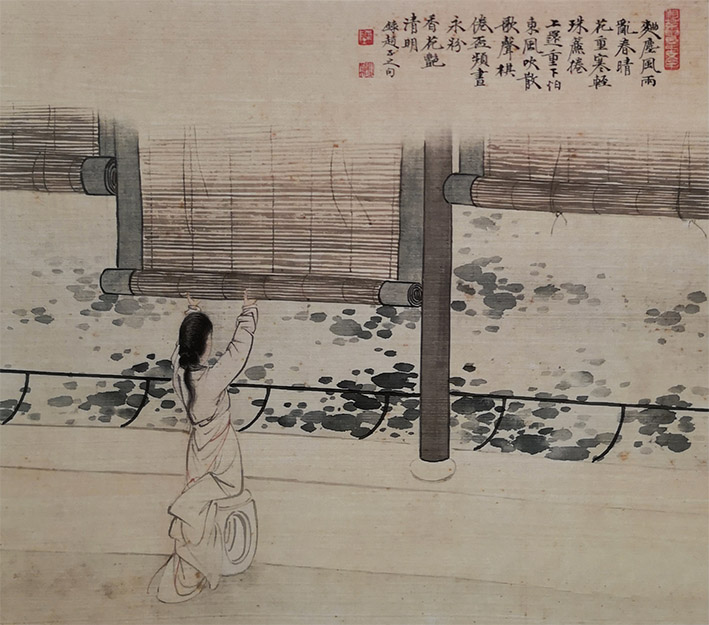 麹塵風雨
亂春晴
花重寒輕
珠簾捲
上還重下怕
東風吹散
歌聲棋
倦盃頻晝
永粉
香花艷
清明
錄趙之句